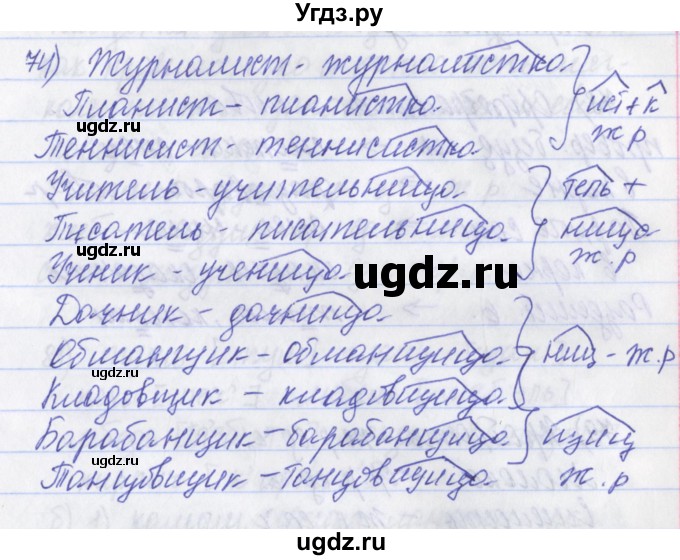 Угдз.ру
74) Журналист - журналистка. ист + к
Пианист - пианистка. ж.р
Теннисист - теннисистка.
Учитель - учительница. тель +
Писатель - писательница. ница
Ученик - ученица. ж.р
Дачник - дачница.
Обманщик - обманщица. ниц - ж.р
Кладовщик - кладовщица.
Барабанщик - барабанщица. щиц
Танцовщик - танцовщица. ж.р
ugdz.ru
ugdz.ru
ugdz.ru
ugdz.ru
ugdz.ru
ugdz.ru
ugdz.ru
ugdz.ru
ugdz.ru
ugdz.ru